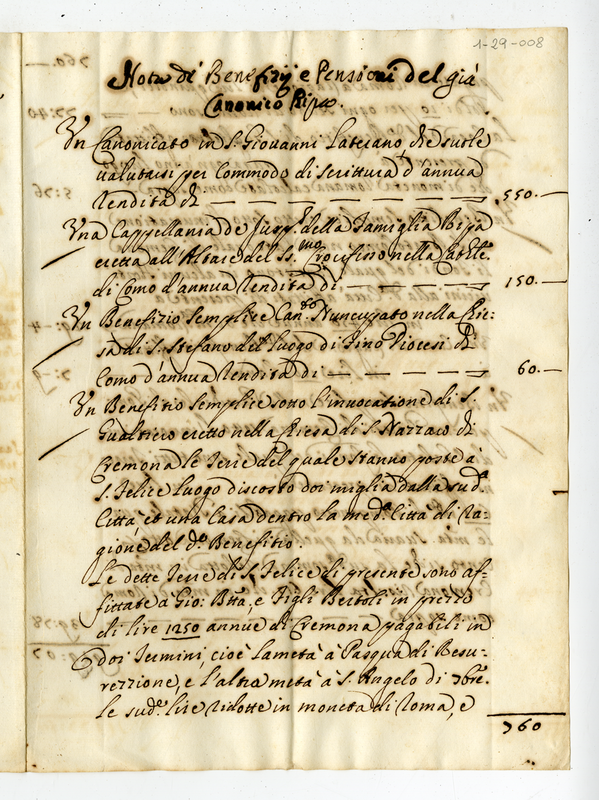 1-29-008
Nota di Benefizij e Pensioni del già
Canonico Ripa.
Un Canonicato in S. Giovanni Laterano, che suole
valutarsi per commodo di scrittura d'annua
rendita di — — — — — — — 550.—
Una Cappellania de Jusp.to della Famiglia Ripa
eretta all'Altare del SS.mo Crocifisso nella Catt.le
di Como d'annua rendita di — — — — 150.—
Un Benefizio Semplice Can.to Nuncupato nella Chie:
sa di S. Stefano del luogo di Diocesi di
Como d'annua rendita di — — — — — 60.—
Un Benefitio Semplice sotto l'invocatione di S.
Gualtiero eretto nella Chiesa di S. Nazzaro di
Cremona le Terre del quale stanno poste à
S. Felice luogo discosto doi miglia dalla sud.a
Città et una Casa dentro la med.a Città di ra:
gione del d.o Benefitio.
Le dette Terre di S. Felice di presente sono af=
fittate à Gio: Btta, e Figli Bertoli in prezzo
di lire 1250 annue di Cremona pagabili in
doi Termini, cioè la metà à Pasqua di Resu=
rezzione, e l'altra metà à S. Angelo di 7bre.
Le sud.e lire ridotte in moneta di Roma, e
760